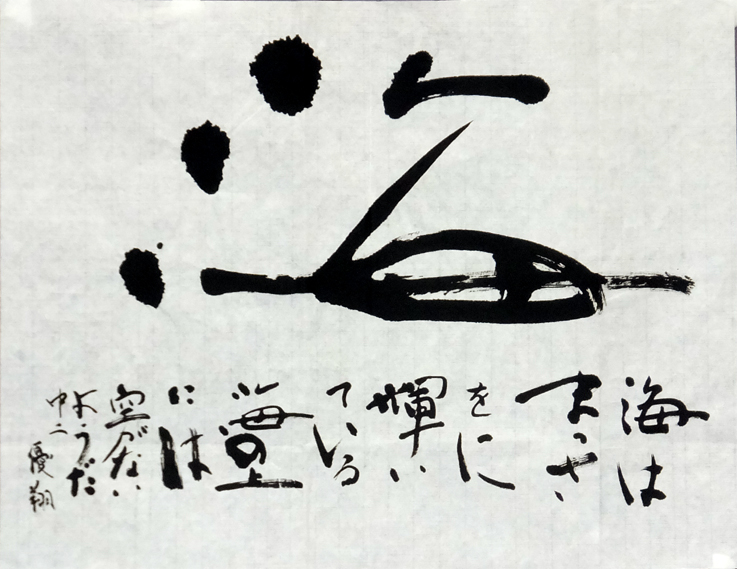 海
海は
まっさ
をに
輝い
ている
海の上
には
空がない
ようだ
中二 優翔